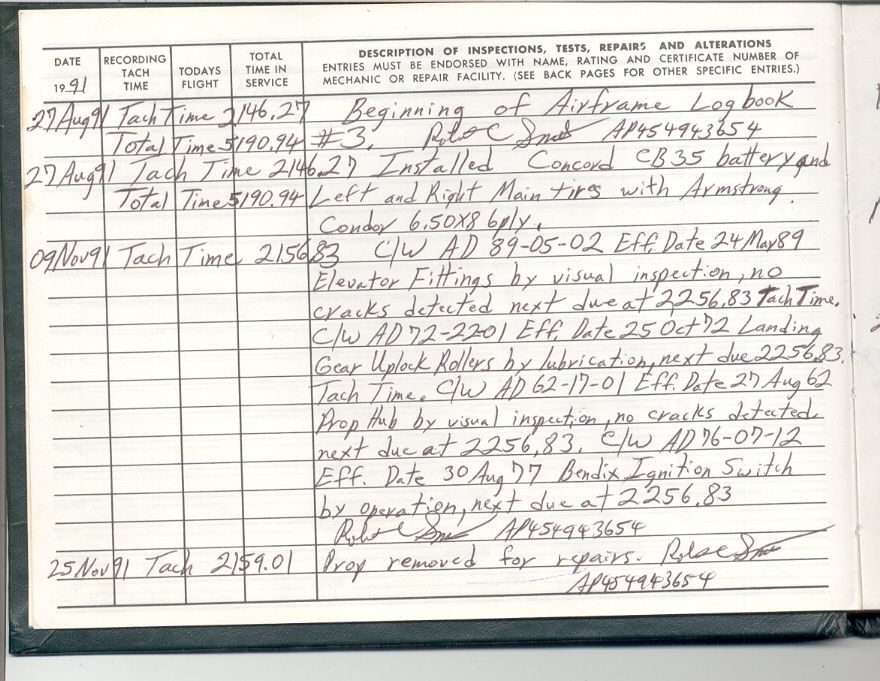 DATE RECORDING TACH TIME TODAYS FLIGHT TOTAL TIME IN SERVICE DESCRIPTION OF INSPECTIONS, TESTS, REPAIRS AND ALTERATIONS
ENTRIES MUST BE ENDORSED WITH NAME, RATING AND CERTIFICATE NUMBER OF
MECHANIC OR REPAIR FACILITY. (SEE BACK PAGES FOR OTHER SPECIFIC ENTRIES.)
1991
27Aug91 Tach Time 2146.27 Beginning of Airframe Logbook
Total Time 5190.94 #3. Robt C AP454943654
27Aug91 Tach Time 2146.27 Installed Concord CB35 battery and
Total Time 5190.94 Left and Right Main tires with Armstrong
Condor 6.50X8 6ply.
09Nov91 Tach Time 2156.83 C/W AD 89-05-02 Eff. Date 24Mar89
Elevator Fittings by visual inspection, no
cracks detected next due at 2256.83 Tach Time.
C/W AD 72-22-01 Eff. Date 25 Oct 72 Landing
Gear Uplock Rollers by lubrication, next due 2256.83.
Tach Time. C/W AD 62-17-01 Eff. Date 27 Aug 62
Prop Hub by visual inspection, no cracks detected.
next due at 2256.83. C/W AD 76-07-12
Eff. Date 30 Aug 77 Bendix Ignition Switch
by operation, next due at 2256.83
Robt C AP454943654
25Nov91 Tach 2159.01 Prop removed for repairs. Robt C
AP454943654